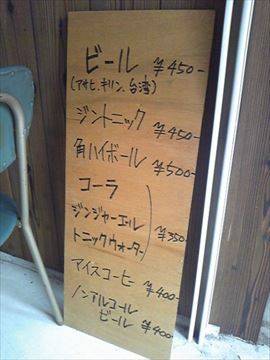 ビール ¥450-
(アサヒ、キリン、台湾)
ジントニック ¥450-
角ハイボール ¥500-
コーラ
ジンジャーエール ¥350-
トニックウォーター
アイスコーヒー ¥400-
ノンアルコール
ビール ¥400-